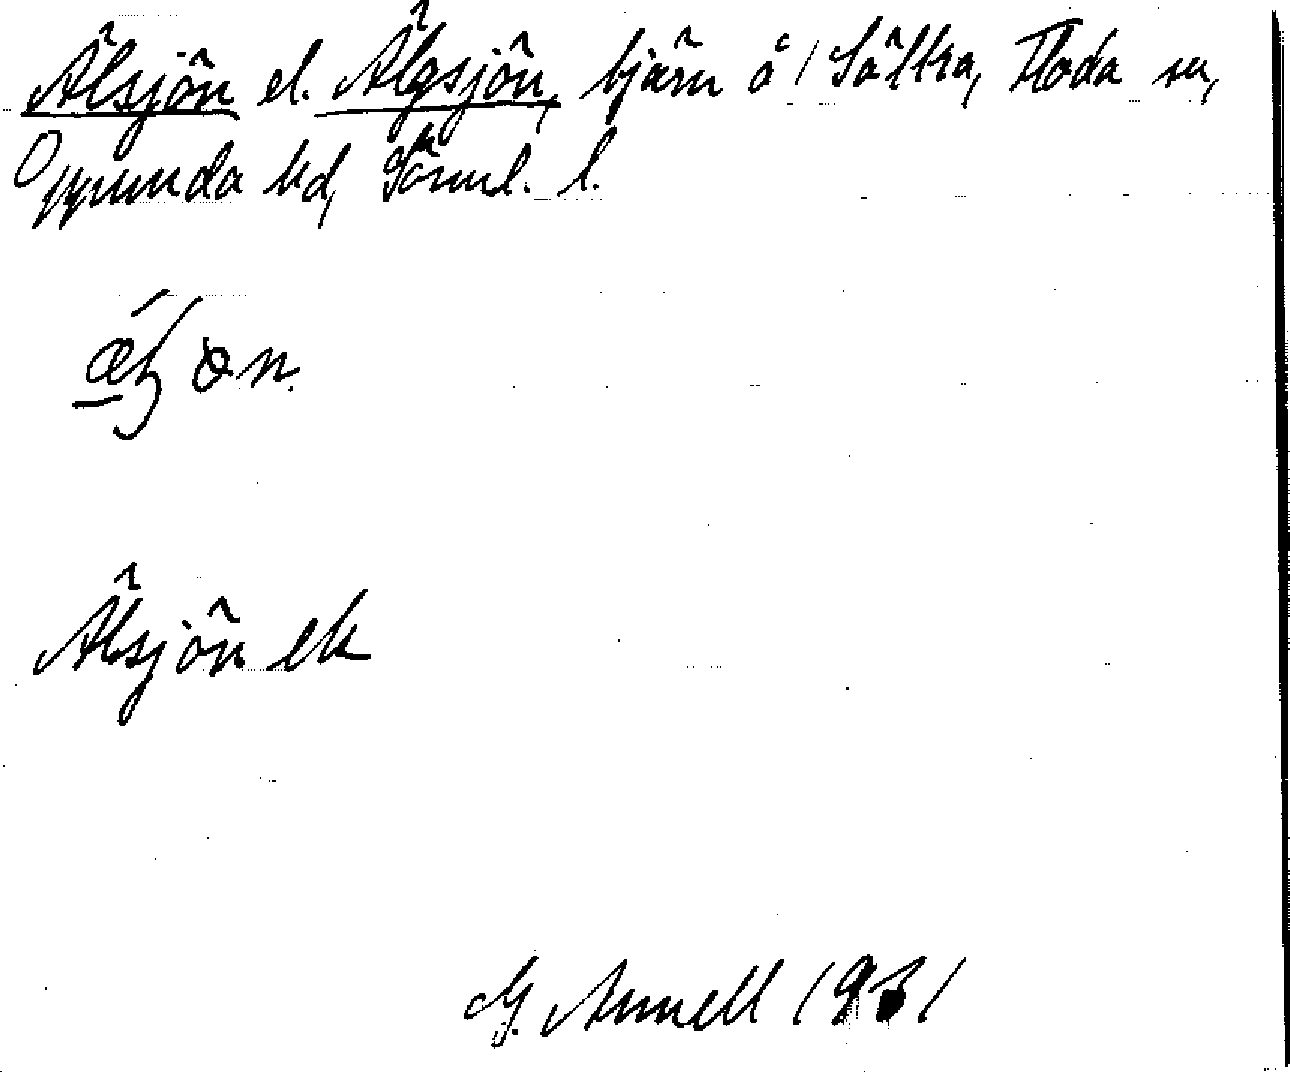 Älsjön el. Älgsjön, tjärn å 1 Sättra, Floda sn,
Oppunda hd, Sörml. l.
Älsjön ek
G. Annell 1931